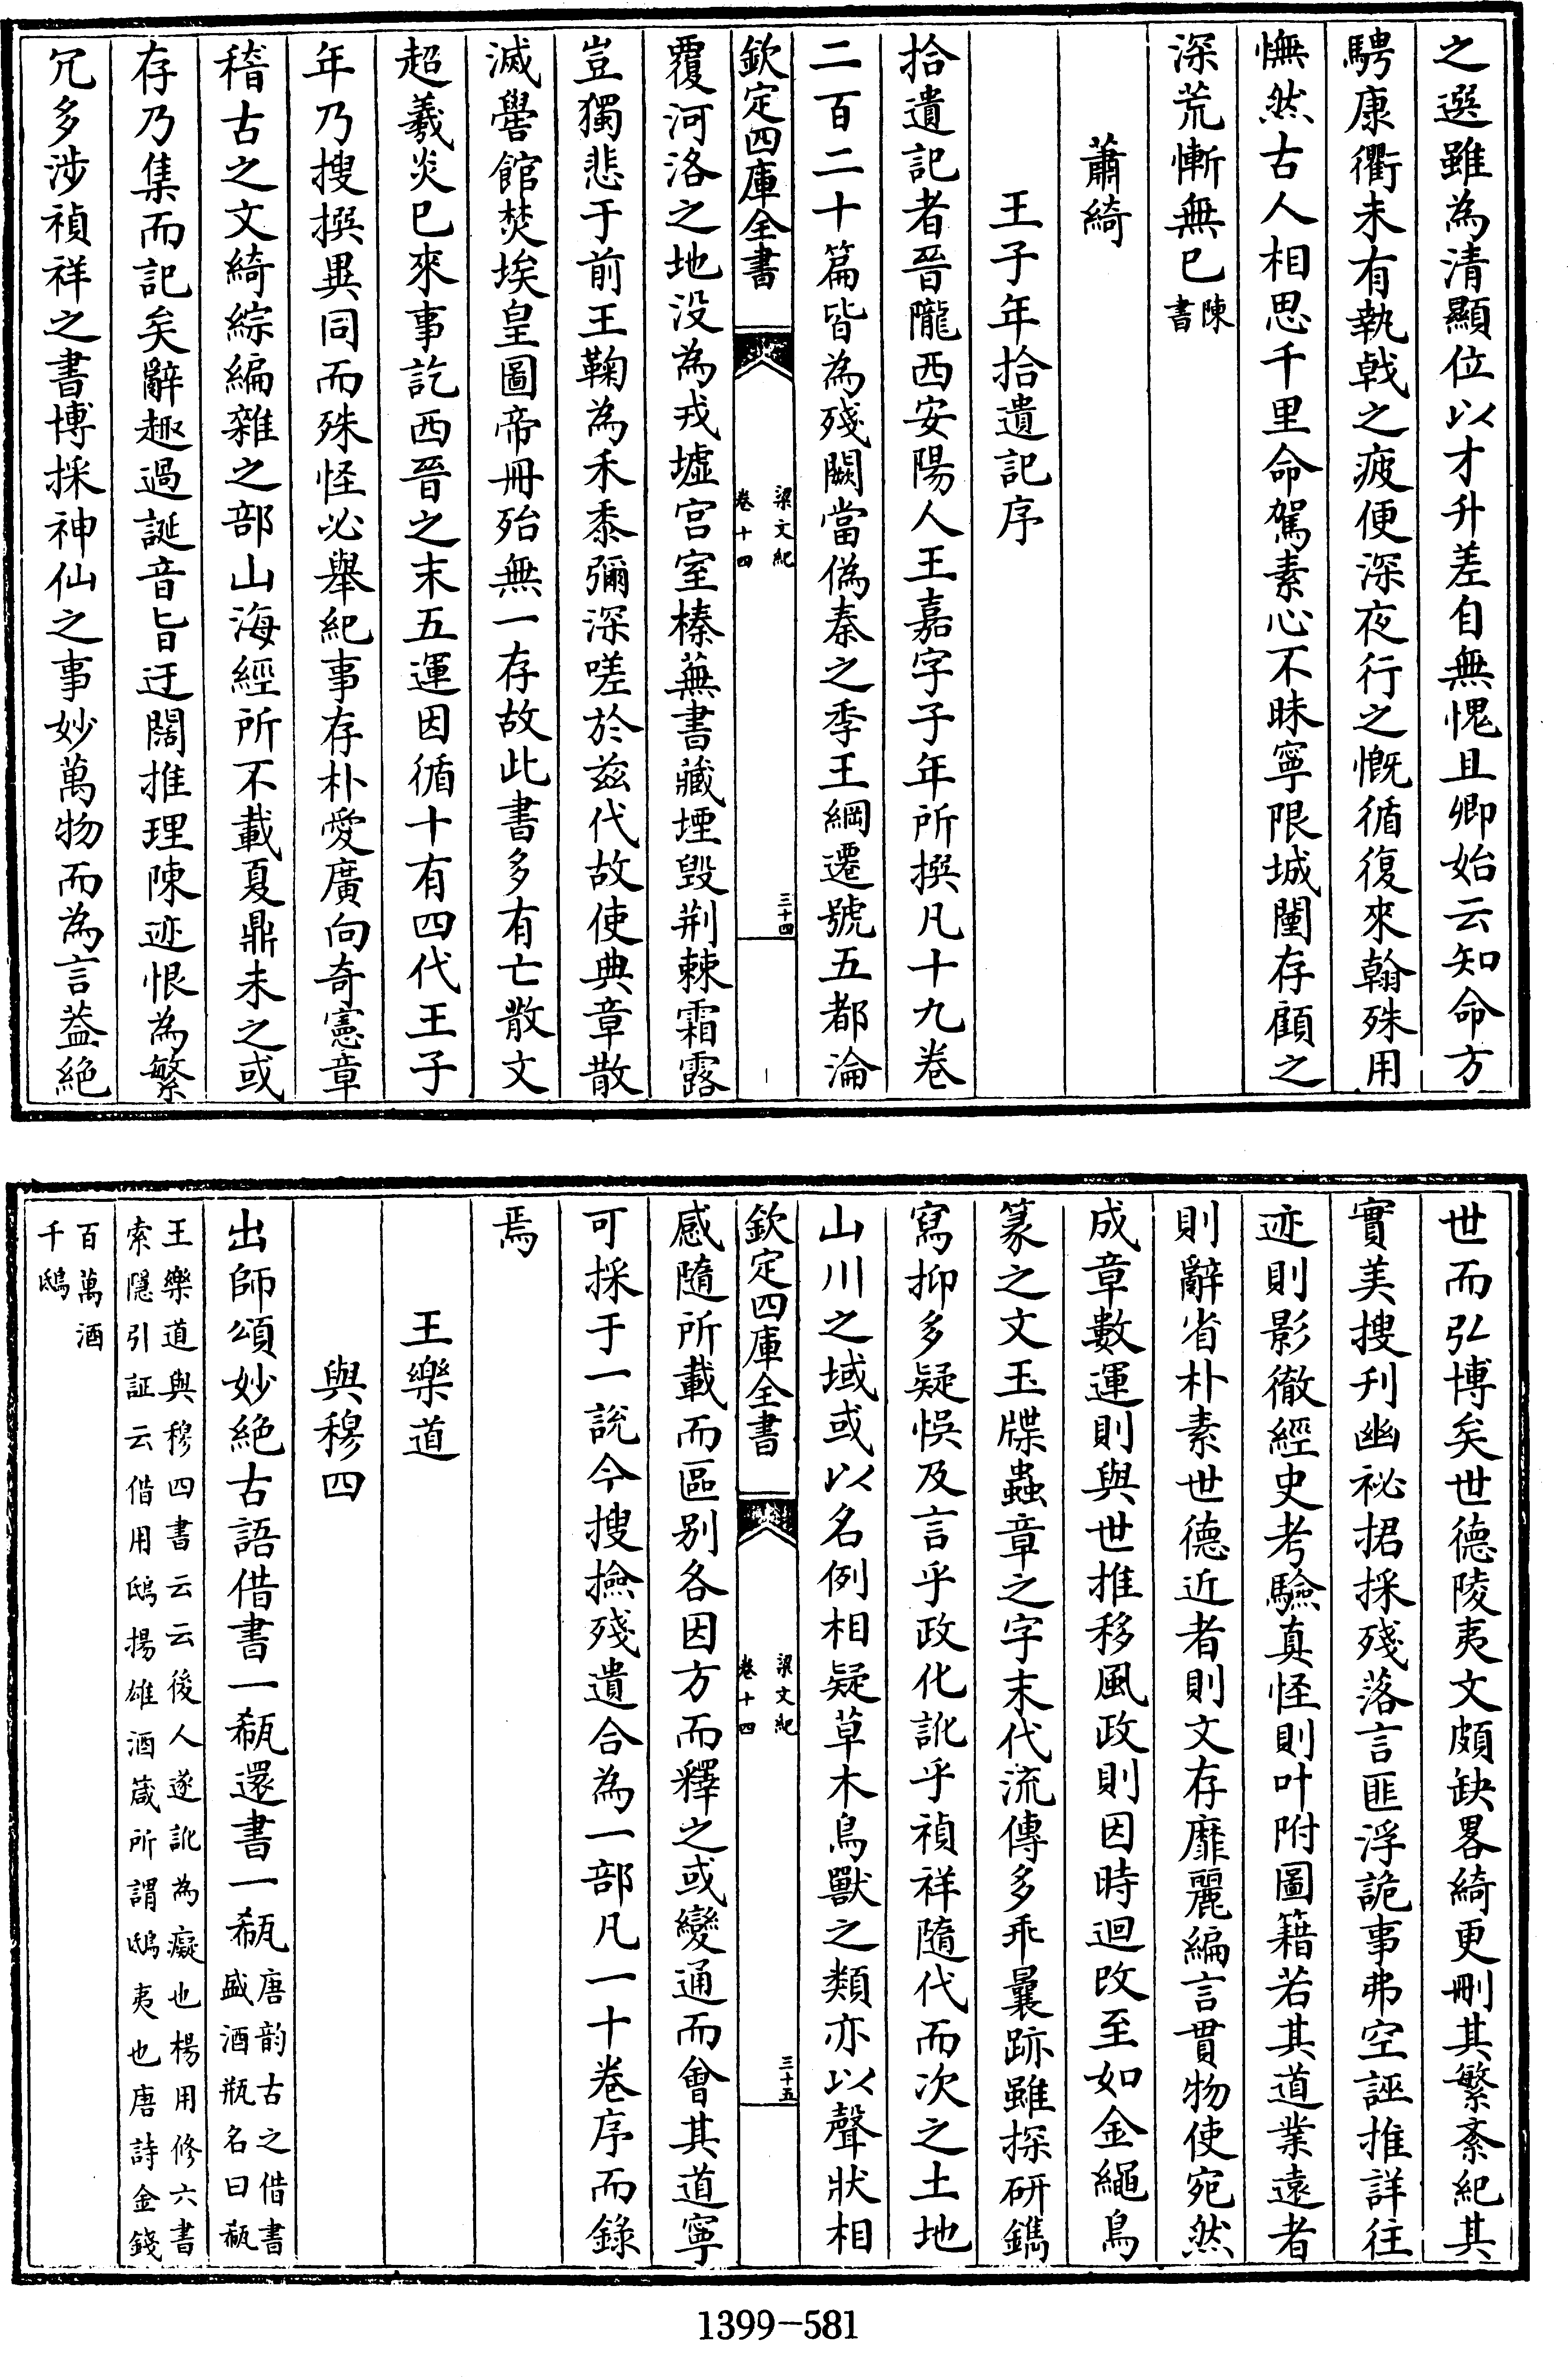 之選雖為清顯位以才升差自無愧且卿始云知命方
騁康衢未有執戟之疲便深夜行之慨循復來翰殊用
憮然古人相思千里命駕素心不昧寧限城闉存顧之
深荒慚無已陳書
蕭綺
王子年拾遺記序
拾遺記者晉隴西安陽人王嘉字子年所撰凡十九卷
二百二十篇皆為殘闕當偽秦之季王綱遷號五都淪
欽定四庫全書
梁文紀
卷十四
三十四
覆河洛之地没為戎墟宫室榛蕪書藏堙毀荆棘霜露
豈獨悲于前王鞠為禾黍彌深嗟於兹代故使典章散
滅黌館焚埃皇圖帝冊殆無一存故此書多有亡散文
超羲炎已來事訖西晉之末五運因循十有四代王子
年乃搜撰異同而殊怪必舉紀事存朴愛廣向奇憲章
稽古之文綺綜編雜之部山海經所不載夏鼎未之或
存乃集而記矣辭趣過誕音旨迂闊推理陳迹恨為繁
冗多涉禎祥之書博採神仙之事妙萬物而為言葢絶
世而弘博矣世德陵夷文頗缺畧綺更刪其繁紊紀其
實美搜刋幽祕捃採殘落言匪浮詭事弗空誣推詳往
迹則影徹經史考驗真怪則叶附圖籍若其道業遠者
則辭省朴素世德近者則文存靡麗編言貫物使宛然
成章數運則與世推移風政則因時迴改至如金繩鳥
篆之文玉牒蟲章之字末代流傳多乖曩跡雖探研鐫
寫抑多疑悞及言乎政化訛乎禎祥隨代而次之土地
山川之域或以名例相疑草木鳥獸之類亦以聲狀相
欽定四庫全書
梁文紀
卷十四
三十五
感隨所載而區别各因方而釋之或變通而會其道寧
可採于一說今搜撿殘遺合為一部凡一十卷序而錄
焉
王樂道
與穆四
出師頌妙絶古語借書一瓻還書一瓻唐韵古之借書
盛酒瓶名曰瓻
王樂道與穆四書云云後人遂訛為癡也楊用修六書
索隱引証云借用鴟揚雄酒箴所謂鴟夷也唐詩金錢
百萬酒
千鴟
1399-581